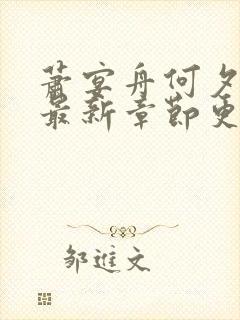 萧宴舟何夕
最新章节更
邹进文